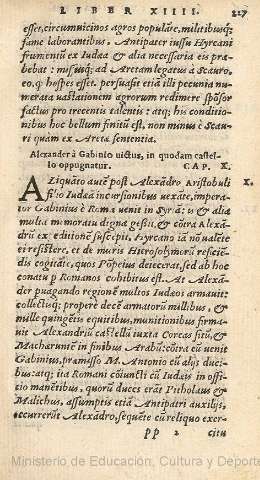 LIBER XIIII. 227
esset, circumuicinos agros populare, militibusq;
fame laborantibus. Antipater iussu Hyrcani
frumentū ex Iudæa & alia necessaria eis præ-
bebat: missusq; ad Aretam legatus à Scauro,
eo, q hospes esset, persuasit etiā illi pecunia nu-
merata uastationem agrorum redimere spōsor
factus pro trecentis talentis: atq; his conditio-
nibus hoc bellum finitū est, non minus è Scau-
ri quàm ex Aretæ sententia.
Alexander à Gabinio uictus, in quodam castel-
lo oppugnatur. CAP. X.
ALiquāto autē post Alexādro Aristobuli X.
filio Iudæā incursionibus uexāte, imperа-
tor Gabinius è Roma uenit in Syriā: is & alia
multa memoratu digna gessit, & cōtra Alexā-
drū ex editione suscepit, Hyrcano iā nō ualēte
ei resistere, et de muris Hierosolymorū refici-
dis cogitāte, quos Pōpeius deiecerat, sed ab hoc
conatu p Romanos cohibitus est. At Alexā-
der puagando regionē multos Iudæos armauit:
collectisq; properè decē armatorū millibus, &
mille quingētis equitibus, munitionibus firma-
uit Alexandriū castellū iuxta Coreas sitū, &
Machærunte in finibus Arabū: cōtra eū uenit
Gabinius, præmisso M. Antonio cū alijs duci-
bus: atq; ita Romani cōiuncti cū Iudæis in offi-
cio manētibus, quorū duces erāt Pitholaus &
Malichus, assumptis etiā Antipatri auxilijs,
occurrerūt Alexādro, sequēte cū reliquo exer-
PP 2 citu
Ministerio de Educación, Cultura y Deporte